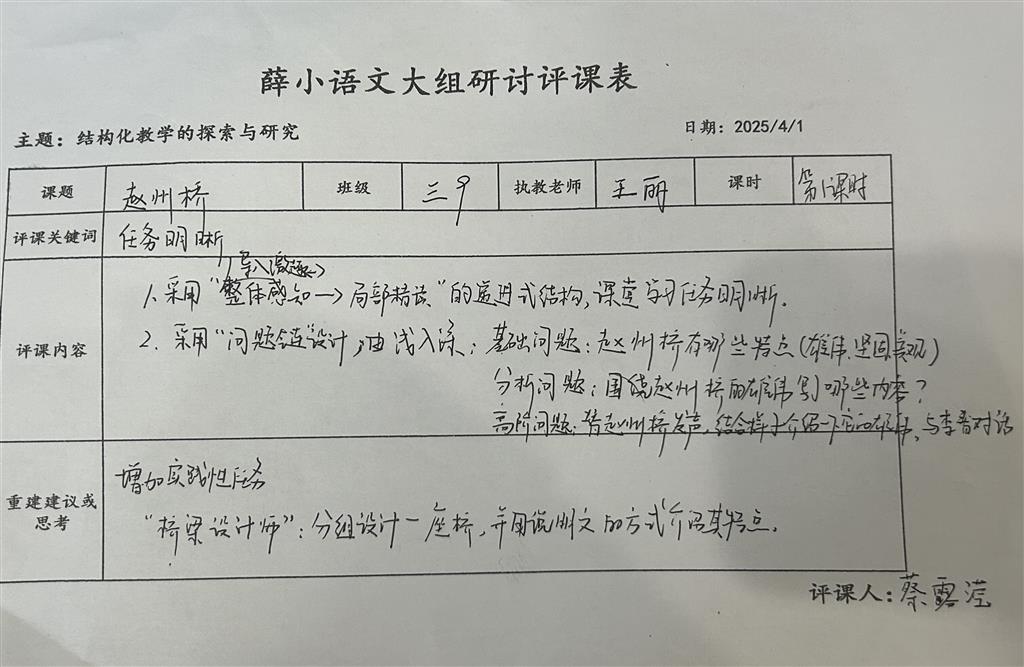 薛小语文大组研讨评课表
主题：结构化教学的探索与研究 日期：2025/4/1
课题 赵州桥 班级 三9 执教老师 王丽 课时 第1课时
评课关键词 任务明晰
导入激趣→
1、采用“整体感知→局部精读”的递进式结构，课堂学习任务明晰．
评课内容 2、采用“问题链”设计，由浅入深：基础问题：赵州桥有哪些特点（雄伟、坚固、美观）
分析问题：围绕赵州桥的雄伟写哪些内容？
高阶问题：替赵州桥发声，结合样子介绍一下它的雄伟，与李春对话
重建建议或思考 增加实践性任务
“桥梁设计师”：分组设计一座桥，并用说明文的方式介绍其特点．
评课人：蔡露滢